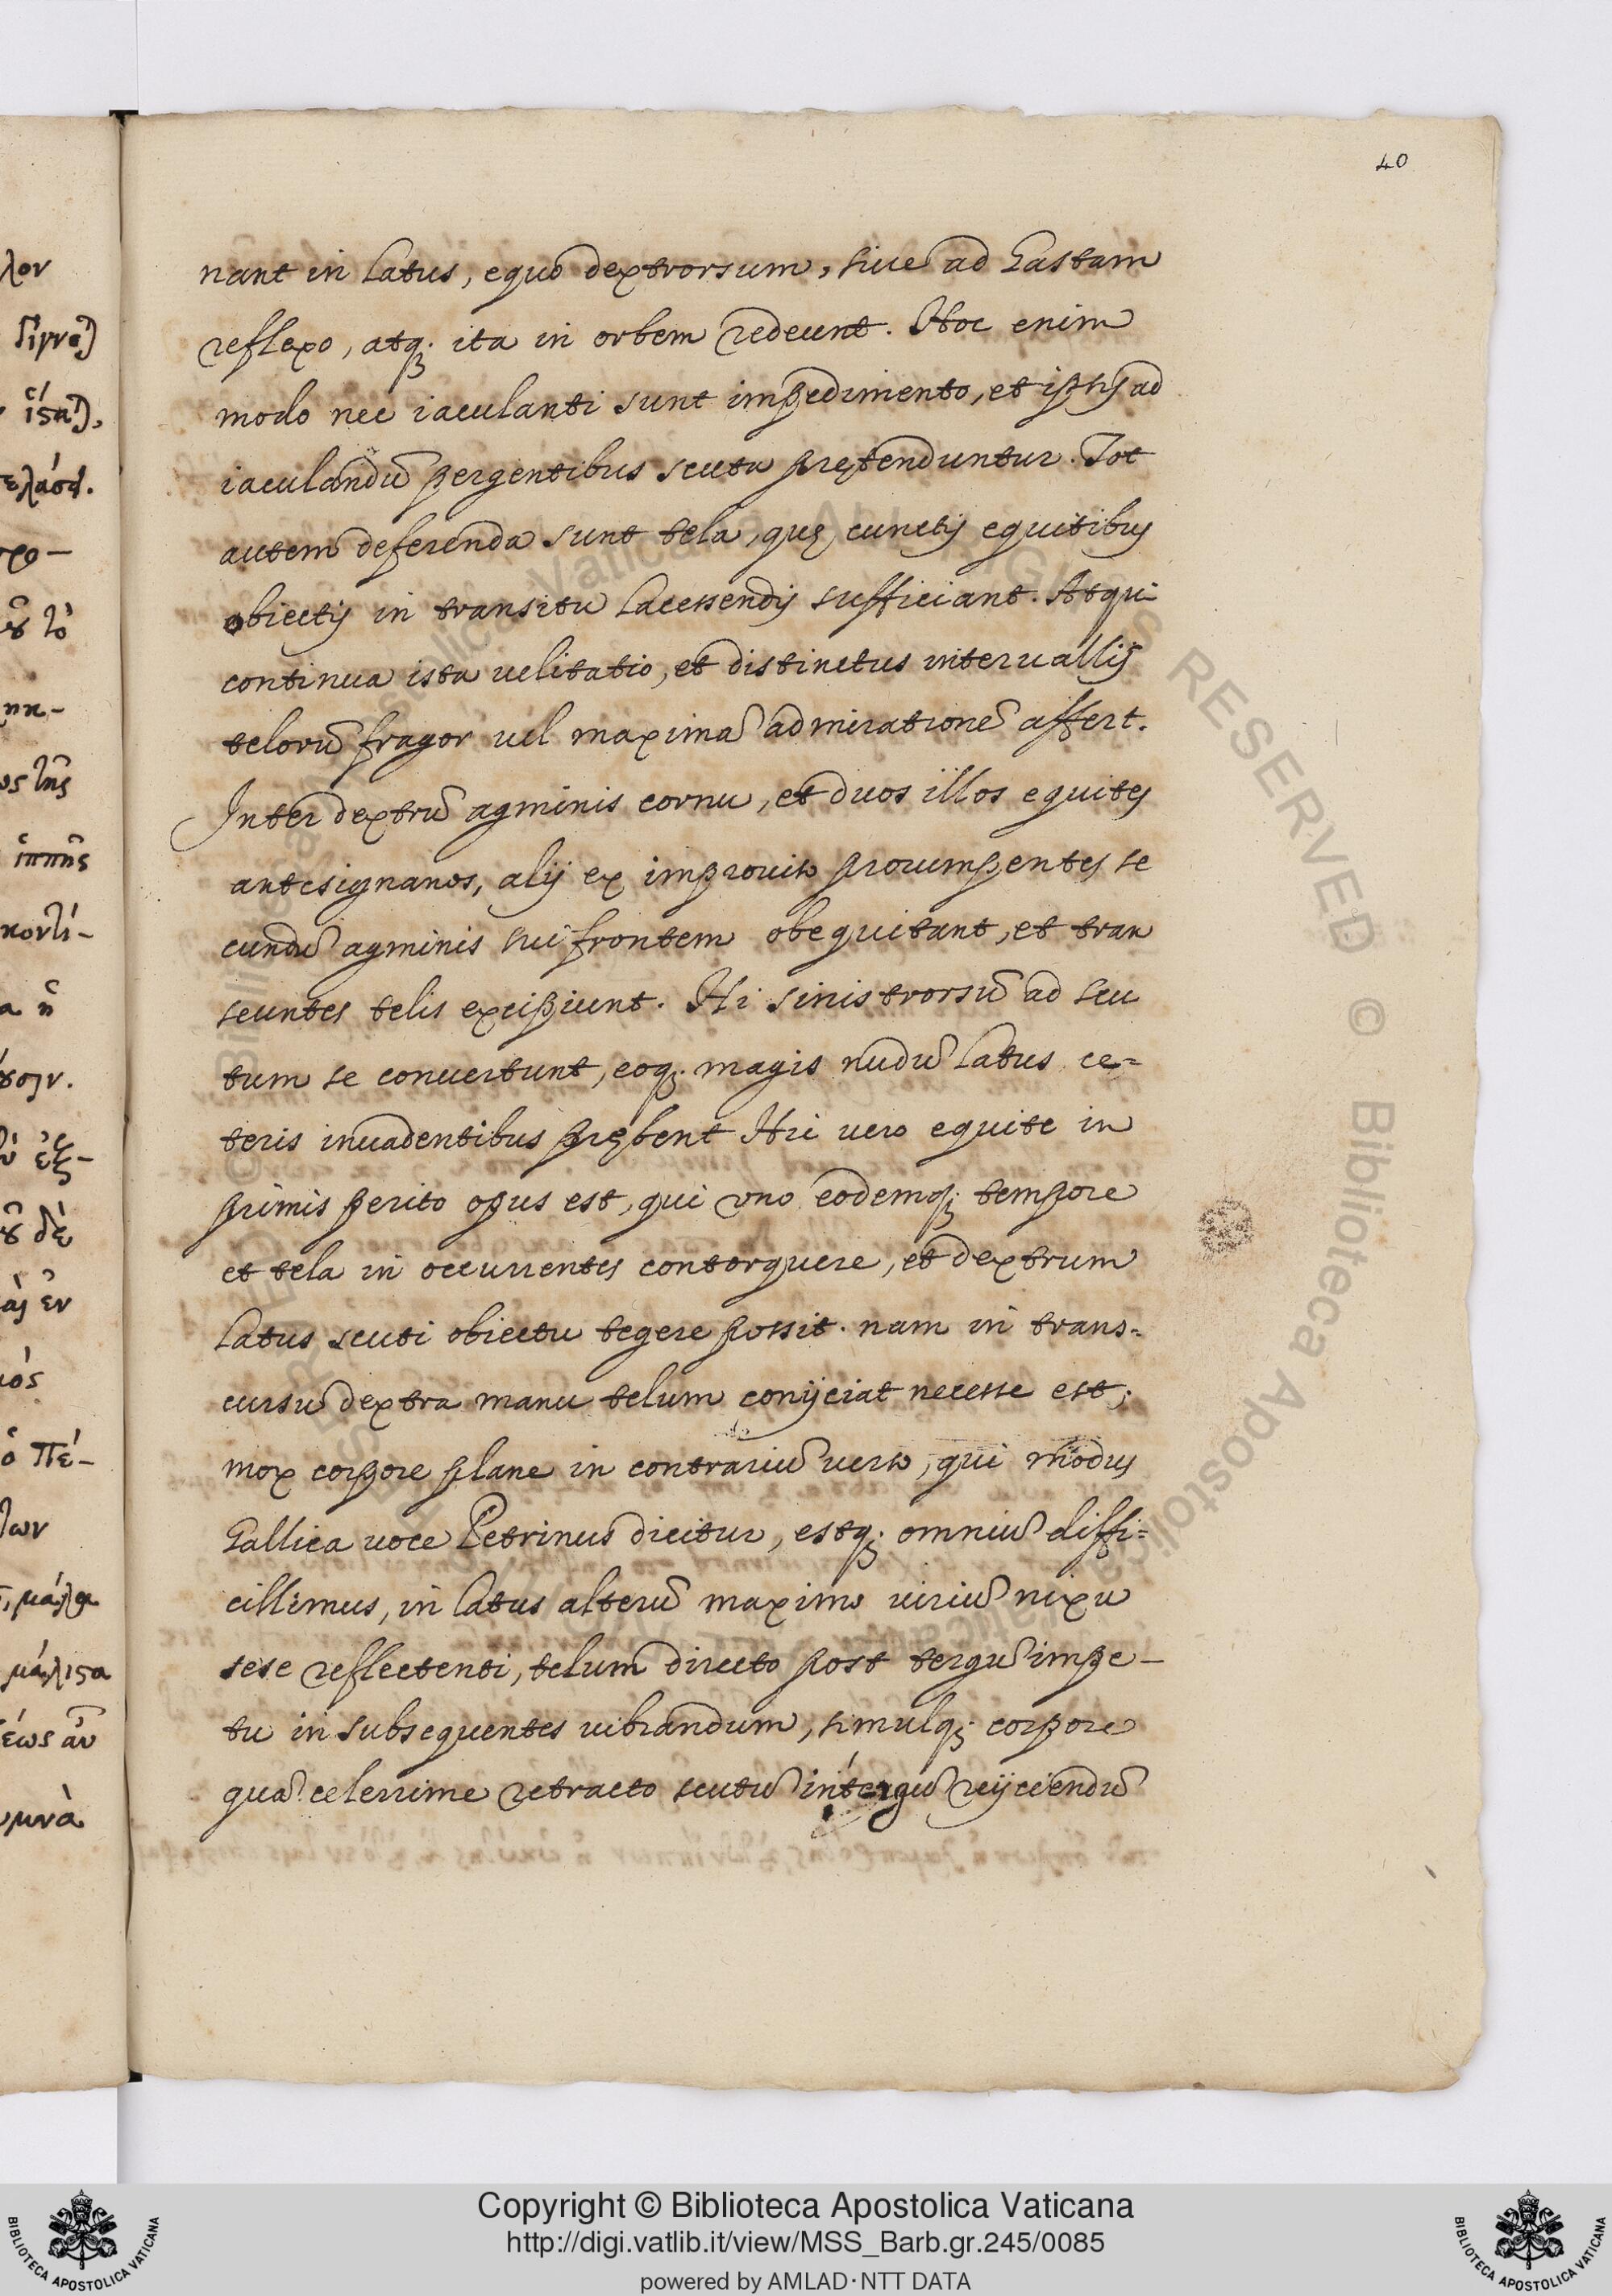 40
nant in latus, equo dextrorsum, siue ad hastam
reflexo, atq; ita in orbem redeunt. Hoc enim
modo nec iaculanti sunt impedimento, et ipsis ad
iaculandũ pergentibus scuta prętenduntur. Tot
autem deferenda sunt tela, quę cunctis equitibus
obiectis in transitu lacessendis sufficiant. Atqui
continua ista uelitatio, et distinctus interuallis
telorũ fragor uel maximã admirationẽ affert.
Inter dextrũ agminis cornu, et duos illos equites
antesignanos, alij ex improuiso prorumpentes se
cundũ agminis sui frontem obequitant, et tran
seuntes telis excipiunt. Hi sinistrorsũ ad scu
tum se conuertunt, eoq; magis nudũ latus ce=
teris inuadentibus prębent Hic vero equite in
primis perito opus est, qui vno eodemq; tempore
et tela in occurrentes contorquere, et dextrum
latus scuti obiectu tegere possit. nam in trans=
cursu dextra manu telum conijciat necesse est;
mox corpore plane in contrariũ verso, qui modus
Gallica uoce Petrinus dicitur, estq; omniũ diffi=
cillimus, in latus alterũ maximo uiriũ nixu
sese reflectenti, telum directo post tergũ impe-
tu in subsequentes uibrandum, simulq; corpore
quã celerrime retracto scutũ in tergũ reijciendũ
λον
ελάσει.
προ-
τὸ
ἱππῆς
κοντί-
ἐξ-
δὲ
ἐν
ὁ Πέ-
των
μάλα
μάλιστα
Copyright © Biblioteca Apostolica Vaticana
http://digi.vatlib.it/view/MSS_Barb.gr.245/0085
powered by AMLAD·NTT DATA
BIBLIOTECA APOSTOLICA VATICANA
BIBLIOTECA APOSTOLICA VATICANA